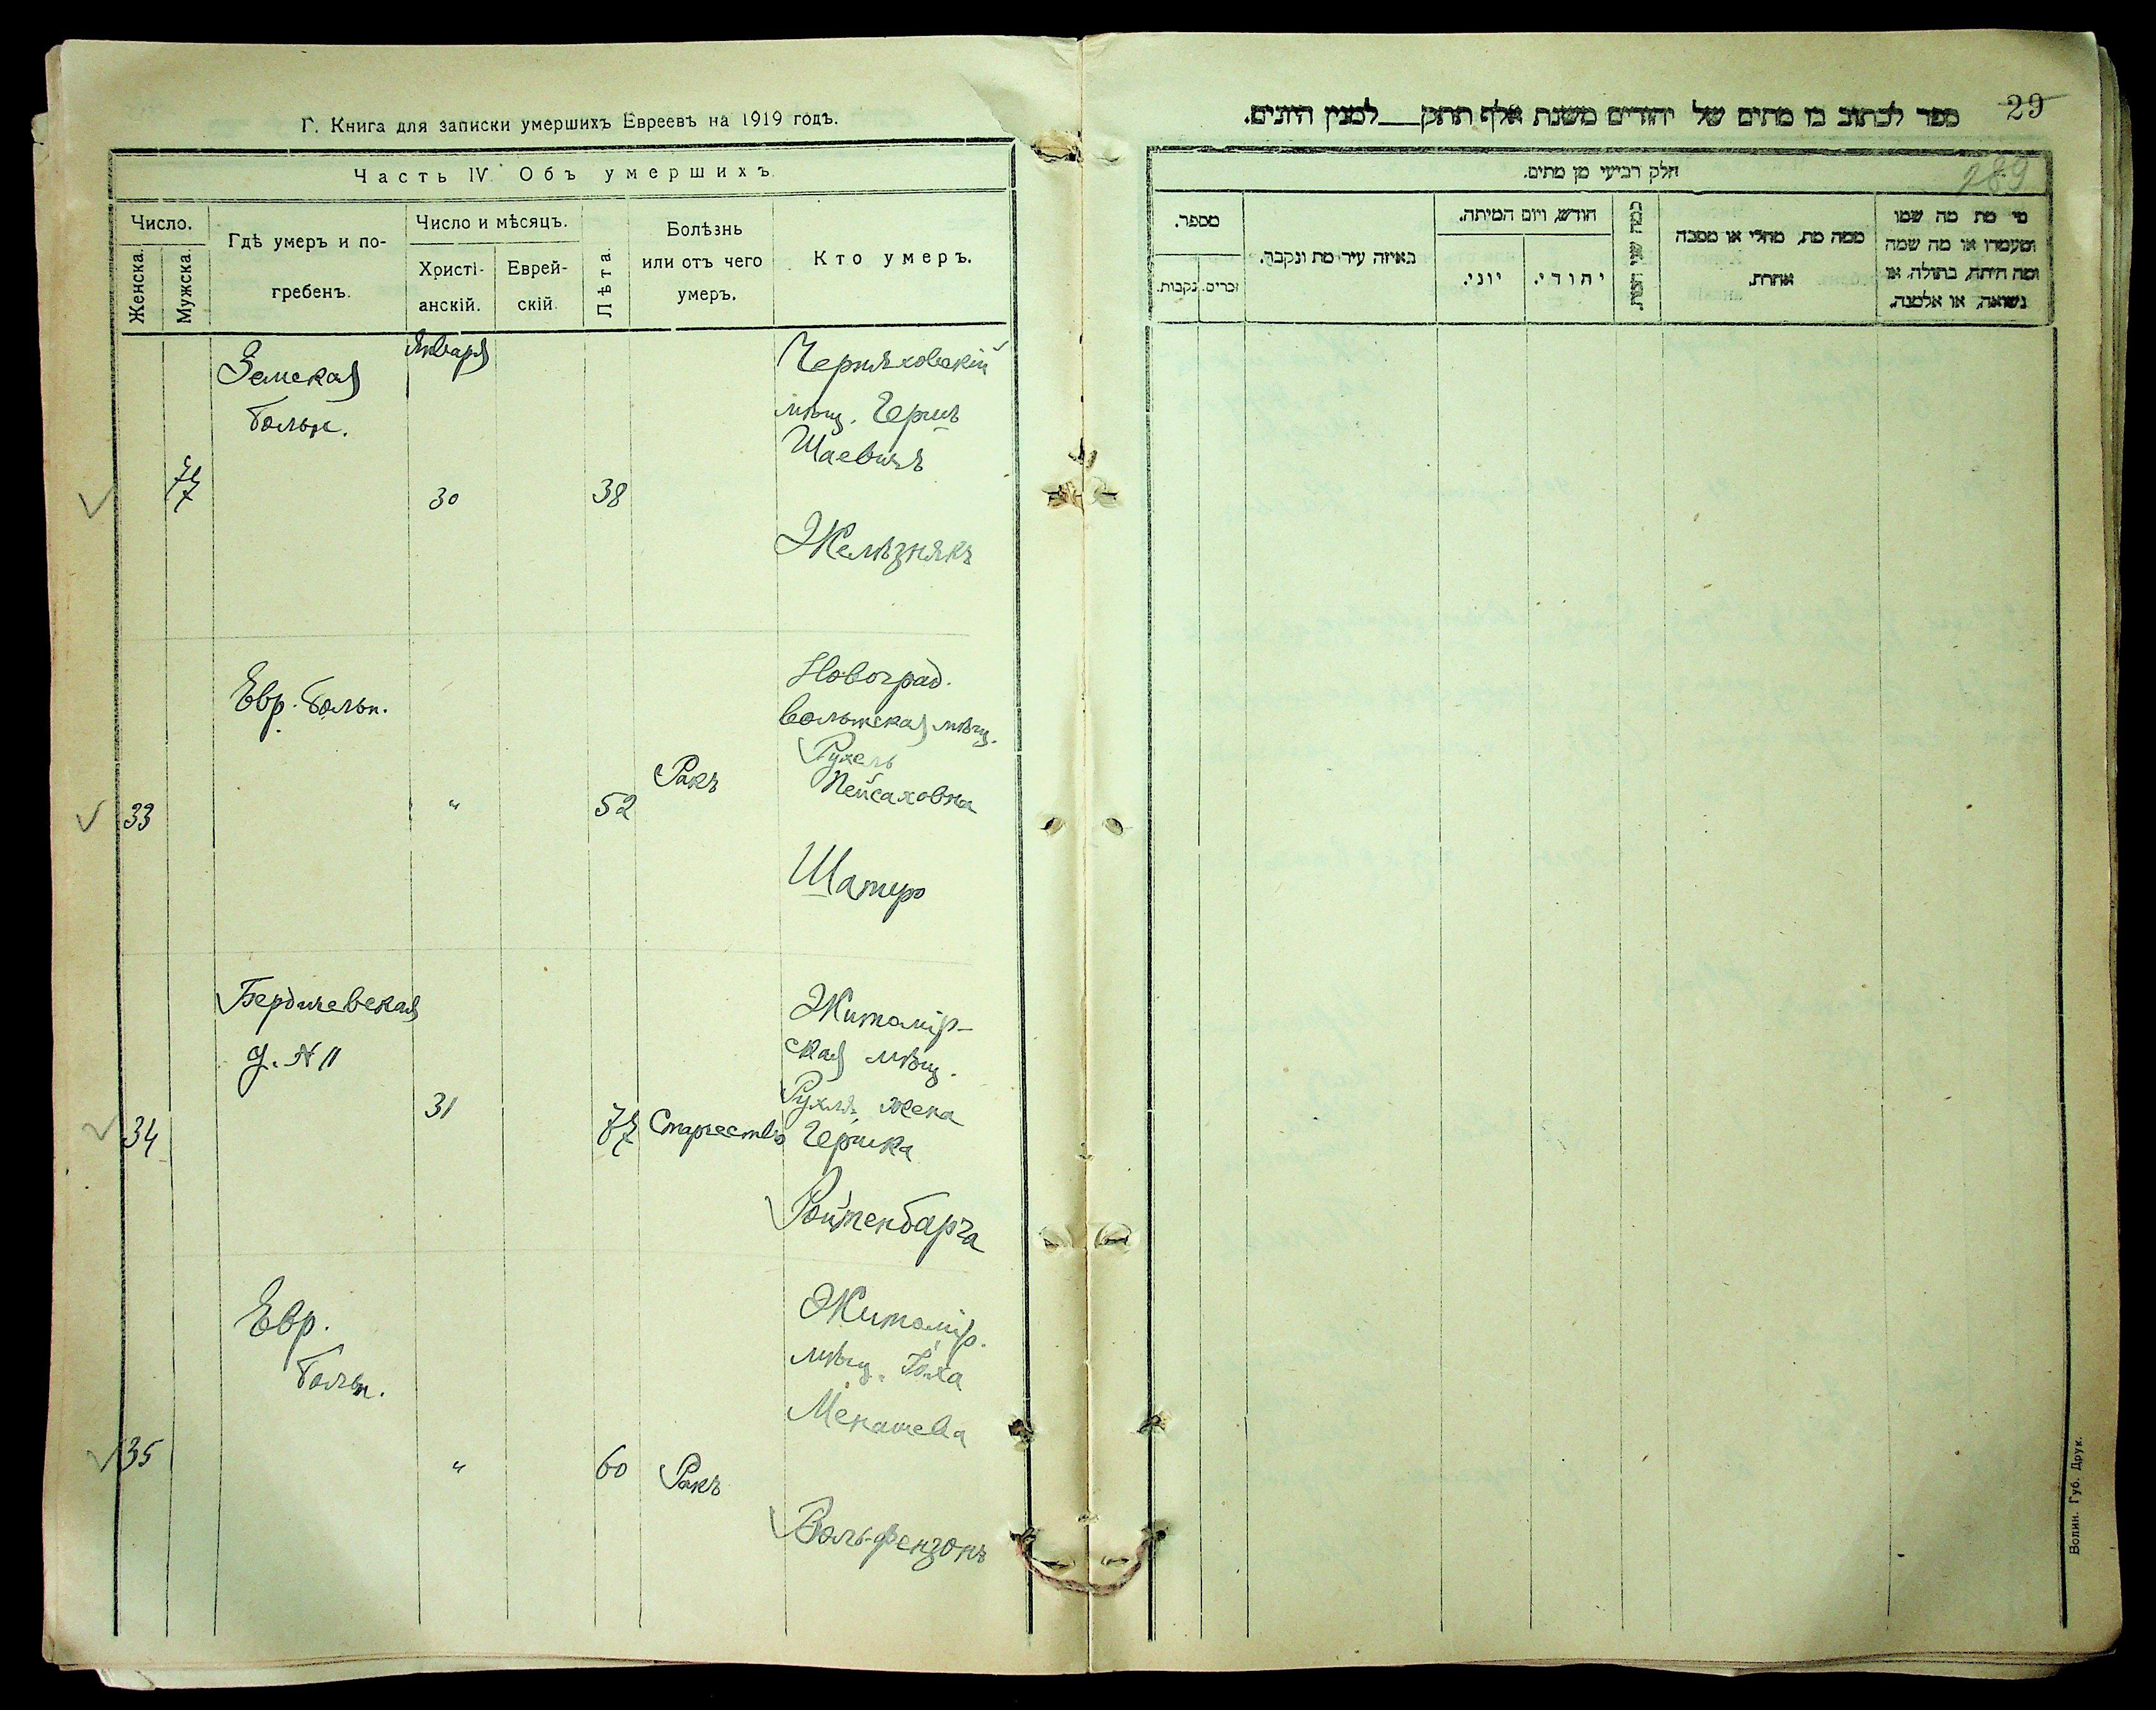 Г. Книга для записки умершихъ Евреевъ на 1919 годъ.
Часть IV. Объ умершихъ.
Число.
Женска.
Мужска.
Гдѣ умеръ и по-
гребенъ.
Число и мѣсяцъ.
Христі-
анскій.
Еврей-
скій.
Лѣта.
Болѣзнь
или отъ чего
умеръ.
Кто умеръ.
77
Земская
больн.
Января
30
38
Черняховскій
мѣщ. Герш
Шаевичъ
Желѣзнякъ
33
Евр. больн.
"
52
Ракъ
Новоград.
волынская мѣщ.
Рухель
Пейсаховна
Шатир
34
Бердичевская
д. № 11
31
77
Старчество
Житомір-
ская мѣщ.
Рухля, жена
Гершка
Ройтенбарга
35
Евр.
больн.
"
60
Ракъ
Житомір.
мѣщ.
Менашева
Вольфензонъ
ספר לכתוב בו מתים של יהודים משנת אלף תתק__למנין היונים.
29
289
חלק רביעי מן מתים.
מספר.
נקבות.
זכרים.
באיזה עיר מת ונקבר.
חודש, ויום המיתה.
יוני.
יהודי.
ממה מת, מחלי או מסבה
אחרת.
מי מת מה שמו
ומעמדו או מה שמה
ומה היתה, בתולה, או
נשואה, או אלמנה.
Волин. Губ. Друк.